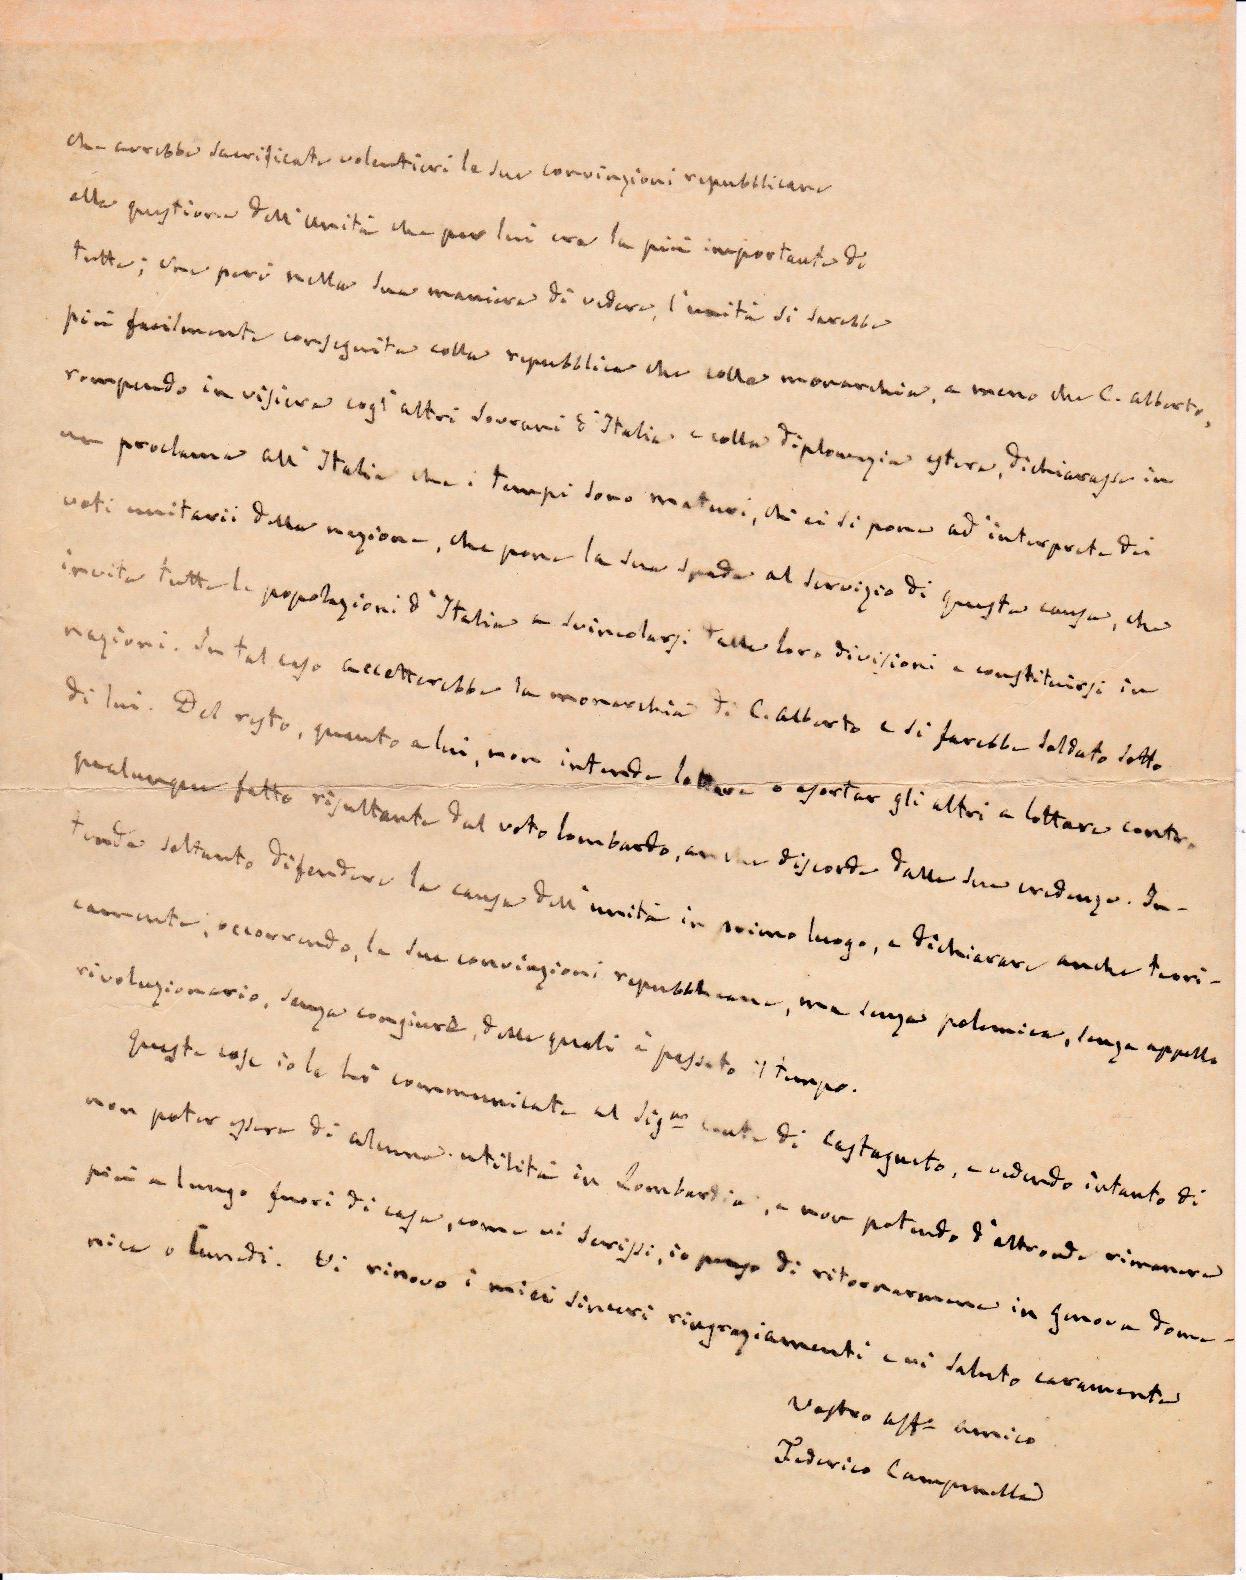 che avrebbe sacrificate volentieri le sue convinzioni repubblicane
alla questione dell'unità che per lui era la più importante di
tutte; che però nella sua maniera di vedere, l'unità si sarebbe
più facilmente conseguita colla repubblica che colla monarchia, a meno che C. Alberto,
rompendo in visiera cogl'altri sovrani d'Italia e colla diplomazia estera, dichiarasse in
un proclama all'Italia che i tempi sono maturi, ch'ei si pone ad interprete dei
voti unitarii della nazione, che pone la sua spada al servizio di questa causa, che
invita tutte le popolazioni d'Italia a svincolarsi dalle loro divisioni e constituirsi in
nazioni. In tal caso accetterebbe la monarchia di C. Alberto e si farebbe soldato sotto
di lui. Del resto, quanto a lui, non intende lottare o esortar gli altri a lottare contro
qualunque fatto risultante dal voto lombardo, anche discorde dalle sue credenze. In-
tende soltanto difendere la causa dell'unità in primo luogo, e dichiarare anche teori-
camente, occorrendo, le sue convinzioni repubblicane, ma senza polemica, senza appello
rivoluzionario, senza congiure, delle quali è passato il tempo.
Queste cose io le hò communicate al Sig.or conte di Castagneto, e vedendo intanto di
non poter essere di alcuna utilità in Lombardia, e non potendo d'altronde rimanere
più a lungo fuori di casa, come vi scrissi, io penso di ritornarmene in Genova dome-
nica o lunedì. Vi rinovo i miei sinceri ringraziamenti e vi saluto caramente
Vostro aff.o amico
Federico Campanella